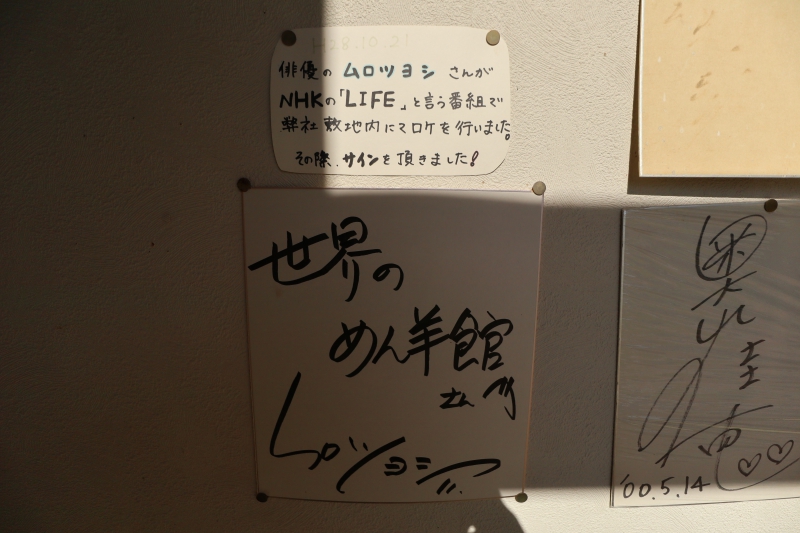 H28.10.21
俳優の ムロツヨシ さんが
NHKの「LIFE」と言う番組で
弊社敷地内にてロケを行いました。
その際、サインを頂きました!
世界の
めん羊館
さん江
ムロツヨシ
奥山佳恵♡♡
'00.5.14